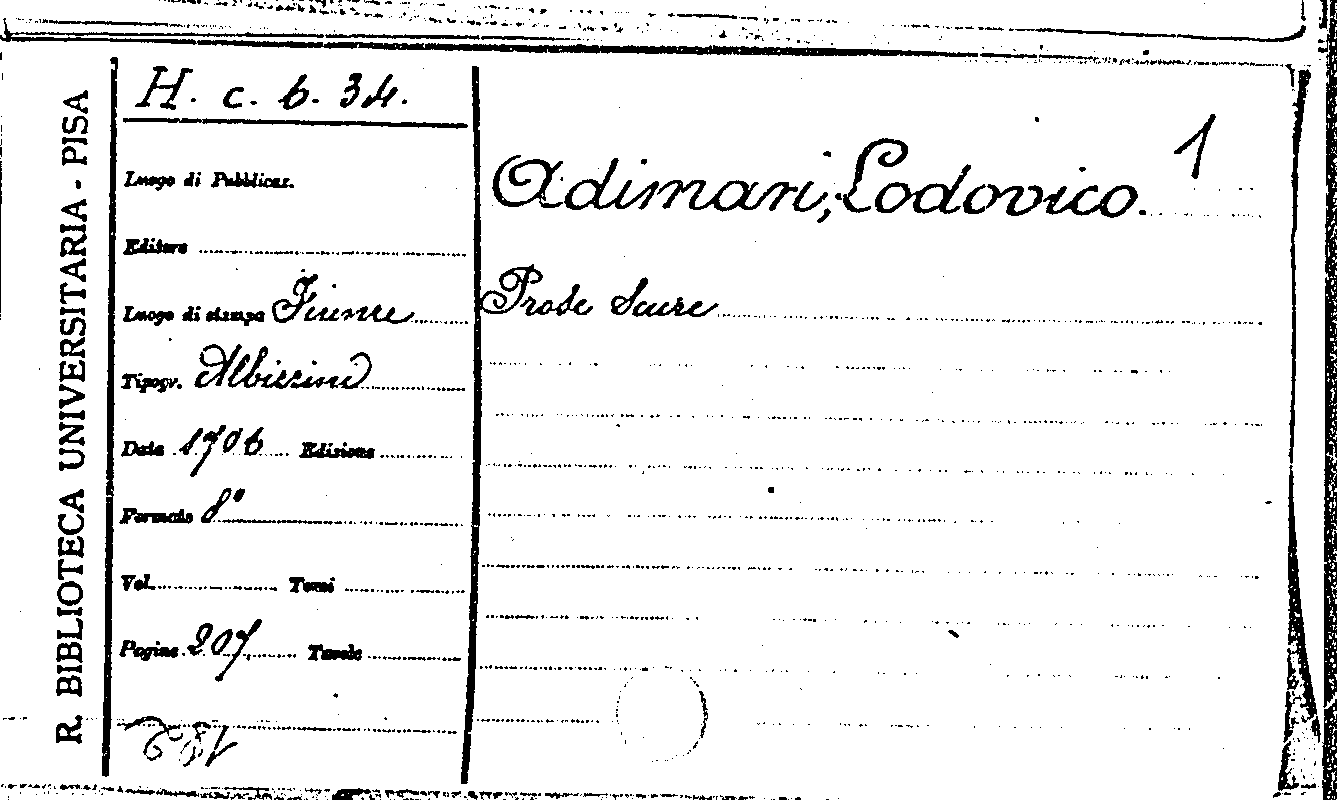 R. BIBLIOTECA UNIVERSITARIA - PISA
H. c. 6. 34.
Luogo di Pubblicaz.
Editore
Luogo di stampa Firenze
Tipogr. Albizzini
Data 1706 Edizione
Formato 8°
Vol. Tomi
Pagine 207 Tavole
1
Adimari, Lodovico.
Prose Sacre